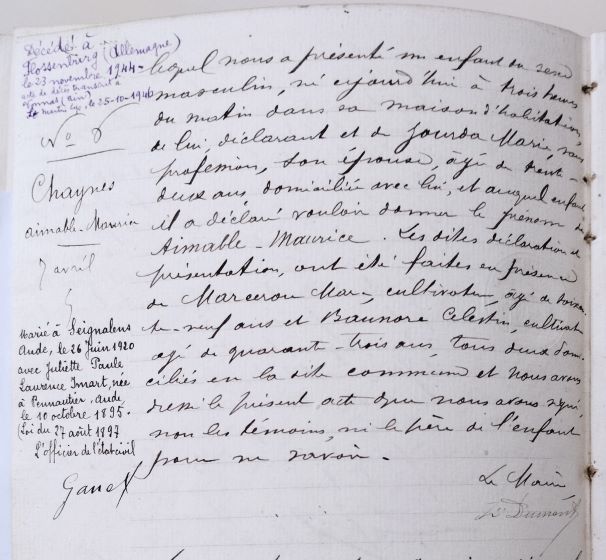 Décédé à
Flossenburg (Allemagne)
le 23 novembre 1944
acte de décès transcrit à
le 25-10-1946
No 6
Chaynes
Aimable-Maurice
7 avril
Marié à Seignalens
Aude, le 26 Juin 1920
avec Juliette Paule
Laurence Imart, née
à Pennautier, Aude,
le 10 octobre 1895.
Loi du 27 août 1897
L'officier de l'état civil
lequel nous a présenté un enfant du sexe
masculin, né aujourd'hui à trois heures
du matin dans sa maison d'habitation,
de lui, déclarant et de Jourda Marie, sans
profession, son épouse, âgé de trente-
deux ans domiciliée avec lui, et auquel enfant
il a déclaré vouloir donner le prénom de
Aimable-Maurice. Les dites déclaration et
présentation, ont été faites en présence
de Marcerou cultivateur, âgé de
te-neuf ans et Celestin, cultivateur
âgé de quarante-trois ans, tous deux domi
ciliés en la dite commune et nous avons
dressé le présent acte que nous avons signé
non les témoins, ni le père de l'enfant
pour ne savoir.
Le Maire,
Dumont